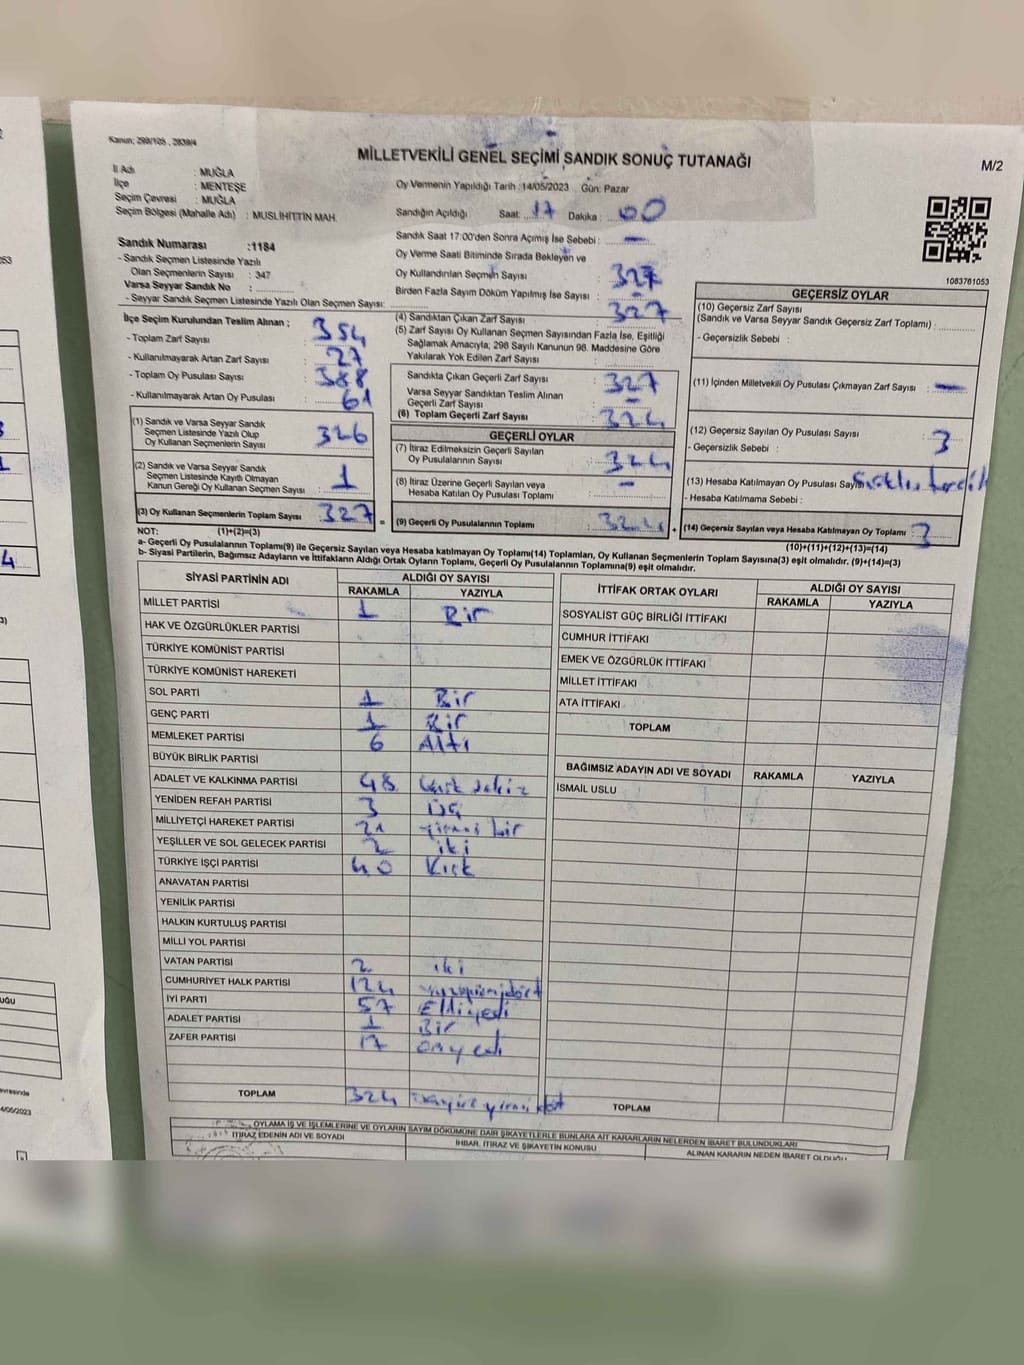 Kanun; 298/105 , 2839/4
MİLLETVEKİLİ GENEL SEÇİMİ SANDIK SONUÇ TUTANAĞI
M/2
İl Adı : MUĞLA
İlçe : MENTEŞE
Seçim Çevresi : MUĞLA
Seçim Bölgesi (Mahalle Adı) : MUSLİHİTTİN MAH.
Oy Vermenin Yapıldığı Tarih :14/05/2023 Gün: Pazar
Sandığın Açıldığı Saat: 17 Dakika : 00
Sandık Numarası :1184
- Sandık Seçmen Listesinde Yazılı
Olan Seçmenlerin Sayısı : 347
Varsa Seyyar Sandık No :
- Seyyar Sandık Seçmen Listesinde Yazılı Olan Seçmen Sayısı:
Sandık Saat 17:00'den Sonra Açımış İse Sebebi : —
Oy Verme Saati Bitiminde Sırada Bekleyen ve
Oy Kullandırılan Seçmen Sayısı : 327
Birden Fazla Sayım Döküm Yapılmış İse Sayısı : —
1083761053
İlçe Seçim Kurulundan Teslim Alınan ;
- Toplam Zarf Sayısı : 354
- Kullanılmayarak Artan Zarf Sayısı : 27
- Toplam Oy Pusulası Sayısı : 388
- Kullanılmayarak Artan Oy Pusulası : 61
(1) Sandık ve Varsa Seyyar Sandık
Seçmen Listesinde Yazılı Olup
Oy Kullanan Seçmenlerin Sayısı : 326
(2) Sandık ve Varsa Seyyar Sandık
Seçmen Listesinde Kayıtlı Olmayan
Kanun Gereği Oy Kullanan Seçmen Sayısı : 1
(3) Oy Kullanan Seçmenlerin Toplam Sayısı : 327
(4) Sandıktan Çıkan Zarf Sayısı : 327
(5) Zarf Sayısı Oy Kullanan Seçmen Sayısından Fazla İse, Eşitliği
Sağlamak Amacıyla; 298 Sayılı Kanunun 98. Maddesine Göre
Yakılarak Yok Edilen Zarf Sayısı
Sandıkta Çıkan Geçerli Zarf Sayısı : 327
Varsa Seyyar Sandıktan Teslim Alınan
Geçerli Zarf Sayısı : —
(6) Toplam Geçerli Zarf Sayısı : 324
GEÇERLİ OYLAR
(7) İtiraz Edilmeksizin Geçerli Sayılan
Oy Pusulalarının Sayısı : 324
(8) İtiraz Üzerine Geçerli Sayılan veya
Hesaba Katılan Oy Pusulası Toplamı : —
= (9) Geçerli Oy Pusulalarının Toplamı : 324 +
GEÇERSİZ OYLAR
(10) Geçersiz Zarf Sayısı
(Sandık ve Varsa Seyyar Sandık Geçersiz Zarf Toplamı) :
- Geçersizlik Sebebi :
(11) İçinden Milletvekili Oy Pusulası Çıkmayan Zarf Sayısı : —
(12) Geçersiz Sayılan Oy Pusulası Sayısı : 3
- Geçersizlik Sebebi :
(13) Hesaba Katılmayan Oy Pusulası Sayısı
- Hesaba Katılmama Sebebi :
(14) Geçersiz Sayılan veya Hesaba Katılmayan Oy Toplamı : 3
NOT: (1)+(2)=(3)
(10)+(11)+(12)+(13)=(14)
a- Geçerli Oy Pusulalarının Toplamı(9) ile Geçersiz Sayılan veya Hesaba katılmayan Oy Toplamı(14) Toplamları, Oy Kullanan Seçmenlerin Toplam Sayısına(3) eşit olmalıdır. (9)+(14)=(3)
b- Siyasi Partilerin, Bağımsız Adayların ve İttifakların Aldığı Ortak Oyların Toplamı, Geçerli Oy Pusulalarının Toplamına(9) eşit olmalıdır.
SİYASİ PARTİNİN ADI ALDIĞI OY SAYISI
RAKAMLA YAZIYLA
MİLLET PARTİSİ 1 Bir
HAK VE ÖZGÜRLÜKLER PARTİSİ
TÜRKİYE KOMÜNİST PARTİSİ
TÜRKİYE KOMÜNİST HAREKETİ
SOL PARTİ 1 Bir
GENÇ PARTİ 1 Bir
MEMLEKET PARTİSİ 6 Altı
BÜYÜK BİRLİK PARTİSİ
ADALET VE KALKINMA PARTİSİ 48 Kırk sekiz
YENİDEN REFAH PARTİSİ 3 Üç
MİLLİYETÇİ HAREKET PARTİSİ 21 yirmi bir
YEŞİLLER VE SOL GELECEK PARTİSİ 2 iki
TÜRKİYE İŞÇİ PARTİSİ 40 Kırk
ANAVATAN PARTİSİ
YENİLİK PARTİSİ
HALKIN KURTULUŞ PARTİSİ
MİLLİ YOL PARTİSİ
VATAN PARTİSİ 2 iki
CUMHURİYET HALK PARTİSİ 124 yüzyirmidört
İYİ PARTİ 57 Elliyedi
ADALET PARTİSİ 1 Bir
ZAFER PARTİSİ 17 onyedi
TOPLAM 324 üçyüz yirmi dört
İTTİFAK ORTAK OYLARI ALDIĞI OY SAYISI
RAKAMLA YAZIYLA
SOSYALİST GÜÇ BİRLİĞİ İTTİFAKI
CUMHUR İTTİFAKI
EMEK VE ÖZGÜRLÜK İTTİFAKI
MİLLET İTTİFAKI
ATA İTTİFAKI
TOPLAM
BAĞIMSIZ ADAYIN ADI VE SOYADI RAKAMLA YAZIYLA
İSMAİL USLU
TOPLAM
OYLAMA İŞ VE İŞLEMLERİNE VE OYLARIN SAYIM DÖKÜMÜNE DAİR ŞİKAYETLERLE BUNLARA AİT KARARLARIN NELERDEN İBARET BULUNDUKLARI
İTİRAZ EDENİN ADI VE SOYADI
İHBAR, İTİRAZ VE ŞİKAYETİN KONUSU
ALINAN KARARIN NEDEN İBARET OLDUĞU